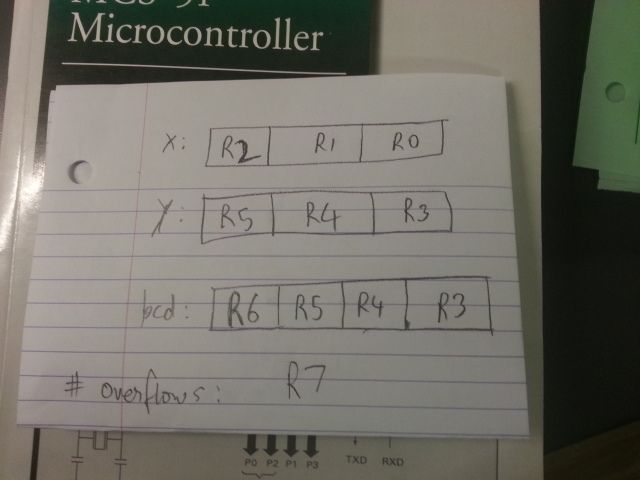 Microcontroller
x: R2 R1 R0
y: R5 R4 R3
bcd: R6 R5 R4 R3
# overflows: R7
P0 P2 P1 P3 TXD RXD